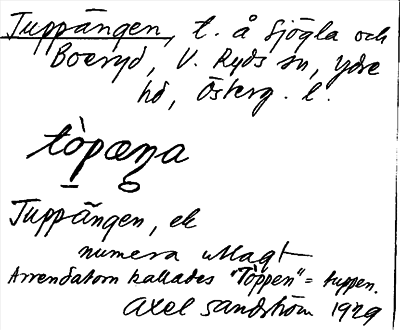 Tuppängen, t. å Sjögla och
Boeryd, V. Ryds sn, Ydre
hd, Österg. l.
tòpæŋa
Tuppängen, ek
numera utlagt
Arrendatorn kallades "Töppen" = tuppen.
Axel Sandström 1929